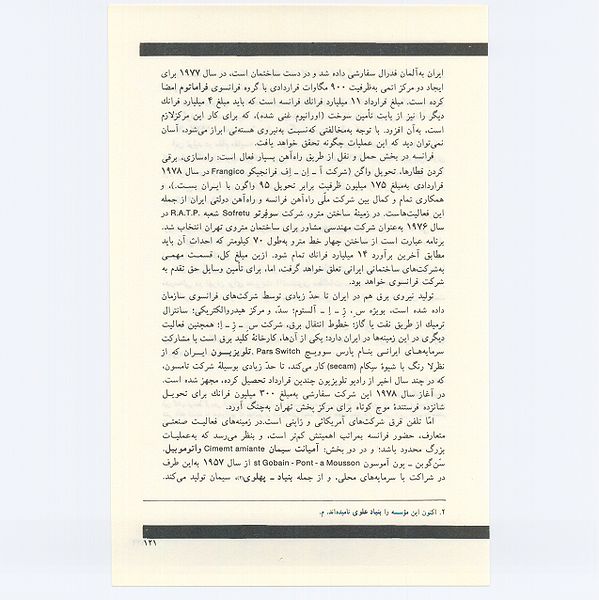 ایران به‌آلمان فدرال سفارشی داده شد و در دست ساختمان است، در سال ۱۹۷۷ برای
ایجاد دو مرکز اتمی به‌ظرفیت ۹۰۰ مگاوات قراردادی با گروه فرانسوی فراماتوم امضا
کرده است. مبلغ قرارداد ۱۱ میلیارد فرانك فرانسه است که باید مبلغ ۴ میلیارد فرانك
دیگر را نیز از بابت تأمین سوخت (اورانیوم غنی شده)، که برای کار این مرکزلازم
است، به‌آن افزود. با توجه به‌مخالفتی که‌نسبت به‌نیروی هسته‌ئی ابراز می‌شود، آسان
نمی‌توان دید که این عملیات چگونه تحقق خواهد یافت.
فرانسه در بخش حمل و نقل از طریق راه‌آهن بسیار فعال است: راه‌سازی، برقی
کردن قطارها، تحویل واگن (شرکت آ ـ اِن ـ اِف فرانجیکو Frangico در سال ۱۹۷۸
قراردادی به‌مبلغ ۱۷۵ میلیون ظرفیت برابر تحویل ۹۵ واگون با ایران بست.)، و
همکاری تمام و کمال بین شرکت ملّی راه‌آهن فرانسه و راه‌آهن دولتی ایران از جمله
این فعالیت‌هاست. در زمینهٔ ساختن مترو، شرکت سوفِرتو Sofretu شعبه R.A.T.P. در
سال ۱۹۷۶ به‌عنوان شرکت مهندسی مشاور برای ساختمان متروی تهران انتخاب شد.
برنامه عبارت است از ساختن چهار خط مترو به‌طول ۷۰ کیلومتر که احداث آن باید
مطابق آخرین برآورد ۱۴ میلیارد فرانك تمام شود. ازین مبلغ کل، قسمت مهمی
به‌شرکت‌های ساختمانی ایرانی تعلق خواهد گرفت، اما، برای تأمین وسایل حق تقدم به
شرکت فرانسوی خواهد بود.
تولید نیروی برق هم در ایران تا حدّ زیادی توسط شرکت‌های فرانسوی سازمان
داده شده است، بویژه س ـ ژ ـ اِ ـ آلستوم؛ سدّ، و مرکز هیدروالکتریکی؛ سانترال
ترمیك از طریق نفت یا گاز؛ خطوط انتقال برق، شرکت س ـ ژ ـ اِ؛ همچنین فعالیت
دیگری در این زمینه‌ها در ایران دارد؛ یکی از آن‌ها، کارخانهٔ کلید برق است با مشارکت
سرمایه‌های ایرانی بنام پارس سوویچ Pars Switch. تلویزیون ایران که از
نظرلا رنگ با شیوهٔ سِکام (secam) کار می‌کند، تا حدّ زیادی بوسیلهٔ شرکت تامسون،
که در چند سال اخیر از رادیو تلویزیون چندین قرارداد تحصیل کرده، مجهز شده است.
در آغاز سال ۱۹۷۸ این شرکت سفارشی به‌مبلغ ۳۰۰ میلیون فرانك برای تحویل
شانزده فرستندهٔ موج کوتاه برای مرکز پخش تهران به‌چنگ آورد.
امّا تلفن قرق شرکت‌های آمریکائی و ژاپنی است.در زمینه‌های فعالیت صنعتی
متعارف، حضور فرانسه بمراتب اهمیتش کم‌تر است، و بنظر می‌رسد که به‌عملیات
بزرگ محدود باشد؛ و در دو بخش: آمیانت سیمان Cimemt amiante واتوموبیل.
سَن‌گوبن ـ پون آموسون st Gobain - Pont - a Mousson از سال ۱۹۵۷ به‌این طرف
در شراکت با سرمایه‌های محلی، و از جمله بنیاد ـ پهلوی(۲)، سیمان تولید می‌کند.
۲. اکنون این مؤسسه را بنیاد علوی نامیده‌اند. م.
۱۲۱